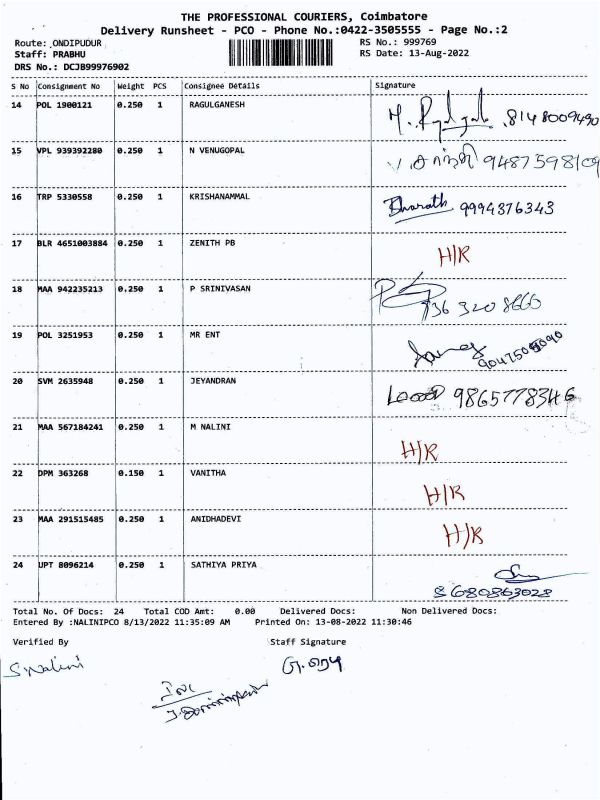 THE PROFESSIONAL COURIERS, Coimbatore
Delivery Runsheet - PCO - Phone No.:0422-3505555 - Page No.:2
Route: ,ONDIPUDUR RS No.: 999769
Staff: PRABHU RS Date: 13-Aug-2022
DRS No.: DCJB99976902
S No Consignment No Weight PCS Consignee Details Signature
14 POL 1900121 0.250 1 RAGULGANESH 8148009490
15 VPL 939392280 0.250 1 N VENUGOPAL V. சாந்தி 9487598109
16 TRP 5330558 0.250 1 KRISHANAMMAL Bharath 9994376343
17 BLR 4651003884 0.250 1 ZENITH PB H/R
18 MAA 942235213 0.250 1 P SRINIVASAN
19 POL 3251953 0.250 1 MR ENT
20 SVM 2635948 0.250 1 JEYANDRAN 9865778346
21 MAA 567184241 0.250 1 M NALINI H/R
22 DPM 363268 0.150 1 VANITHA H/R
23 MAA 291515485 0.250 1 ANIDHADEVI H/R
24 UPT 8096214 0.250 1 SATHIYA PRIYA 8680863028
Total No. Of Docs: 24 Total COD Amt: 0.00 Delivered Docs: Non Delivered Docs:
Entered By :NALINIPCO 8/13/2022 11:35:09 AM Printed On: 13-08-2022 11:30:46
Verified By Staff Signature
S. Nalini